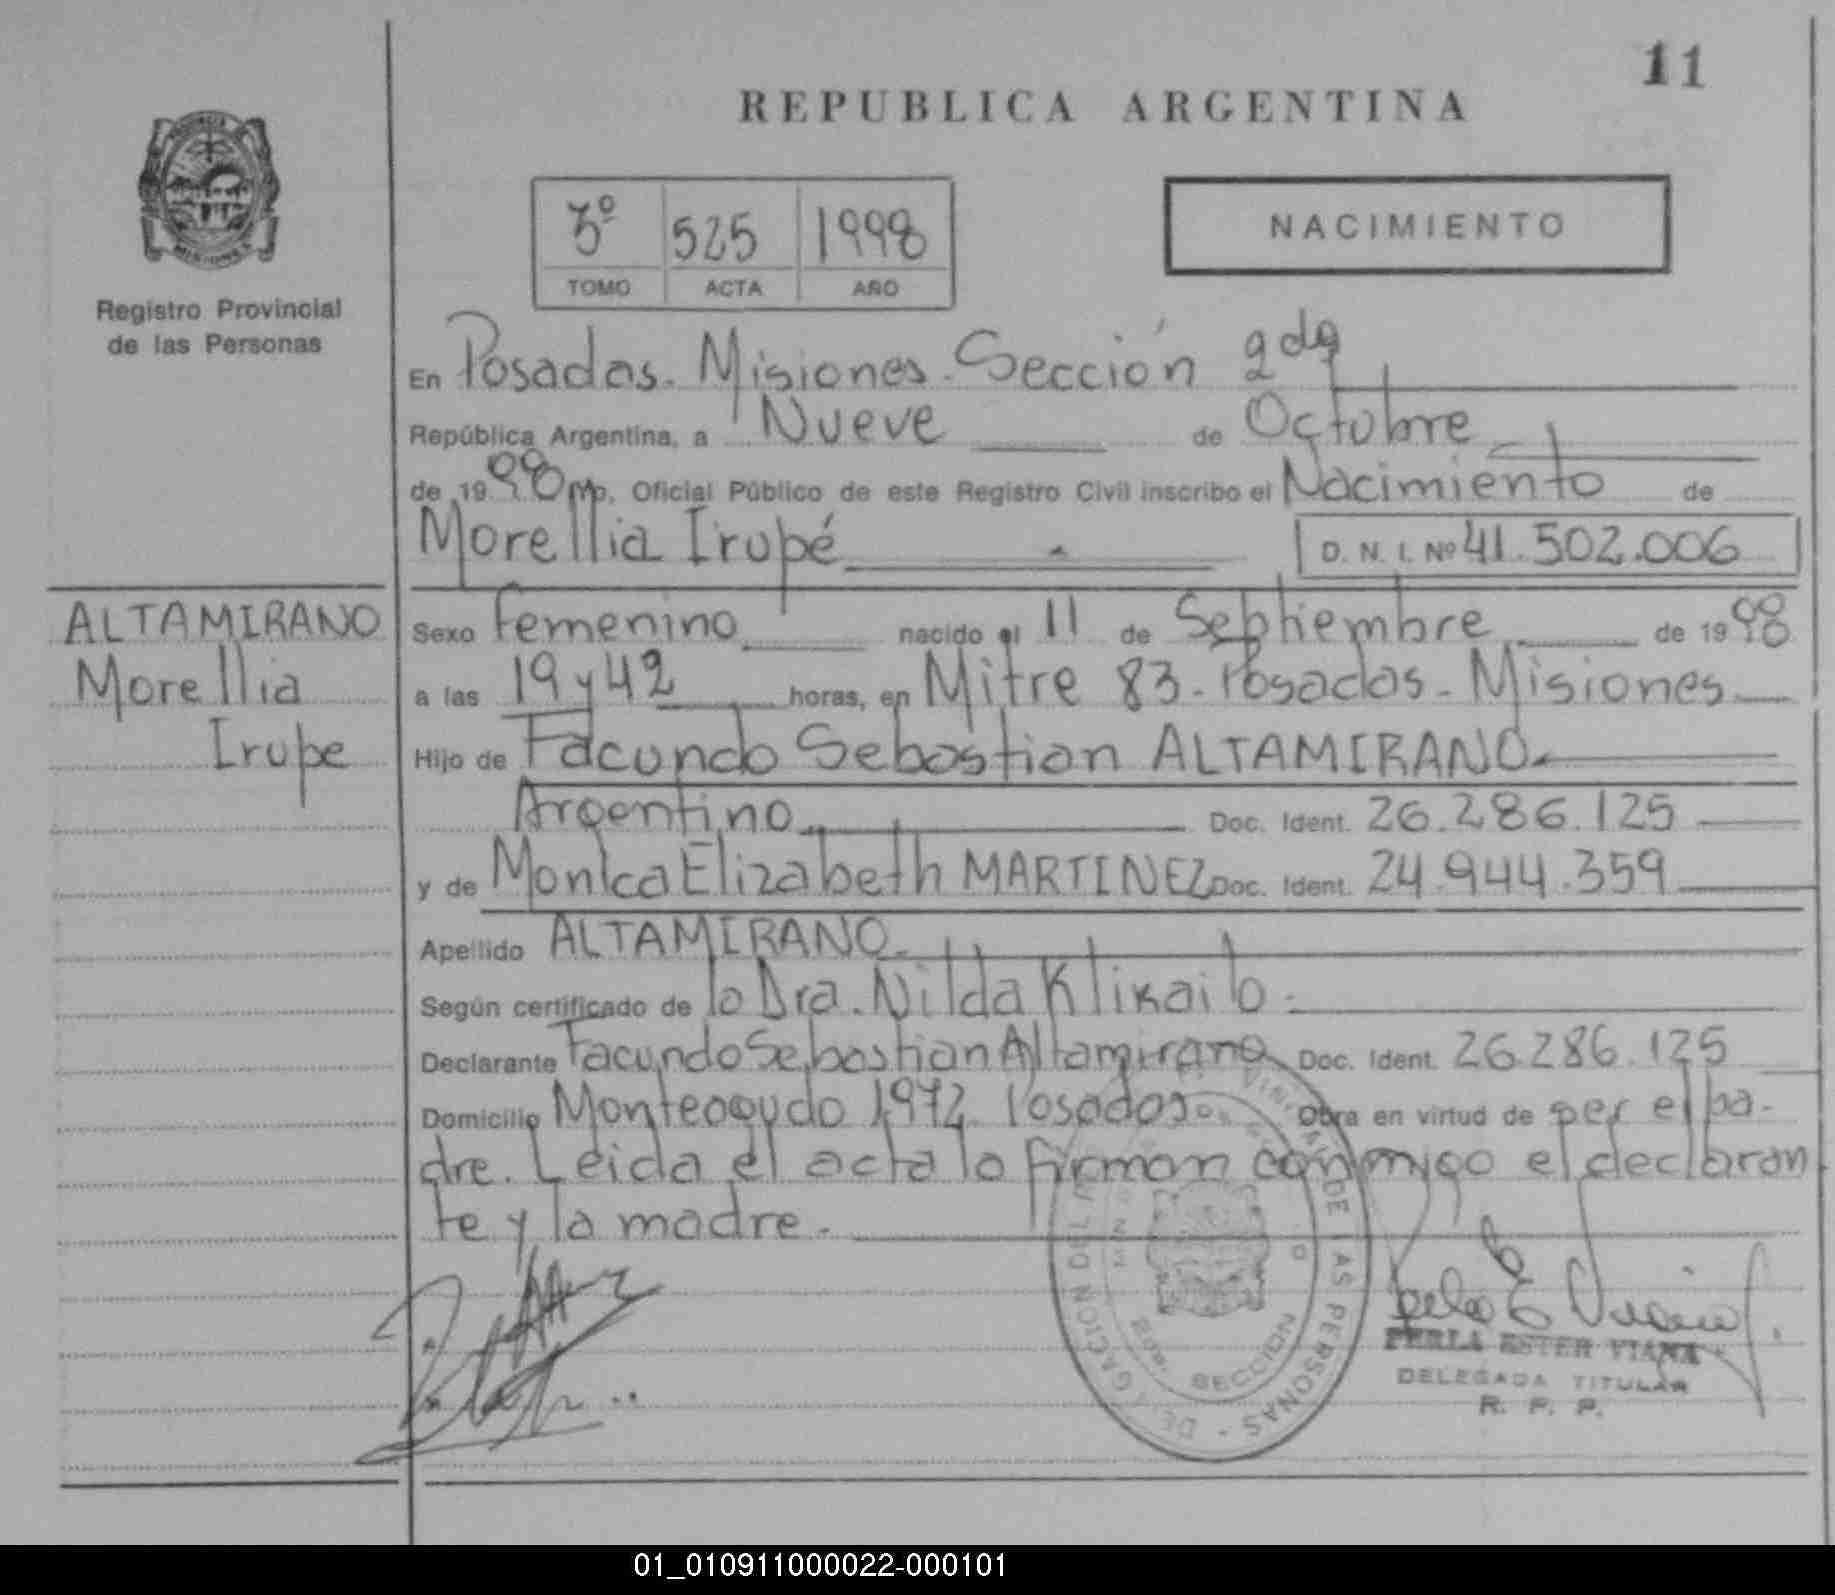 11
REPUBLICA ARGENTINA
PROVINCIA DE
MISIONES
Registro Provincial
de las Personas
3º 525 1998
TOMO ACTA AÑO
NACIMIENTO
En Posadas. Misiones. Sección 2da
República Argentina, a Nueve de Octubre
de 1998 Oficial Público de este Registro Civil inscribo el Nacimiento de
Morellia Irupé D. N. I. Nº 41.502.006
ALTAMIRANO
Morellia
Irupe
Sexo Femenino nacido el 11 de Septiembre de 1998
a las 19 y 42 horas, en Mitre 83 - Posadas - Misiones
Hijo de Facundo Sebastian ALTAMIRANO
Argentino Doc. Ident. 26.286.125
y de Monica Elizabeth MARTINEZ Doc. Ident. 24.944.359
Apellido ALTAMIRANO
Según certificado de la Dra. Nilda
Declarante Facundo Sebastian Altamirano Doc. Ident. 26.286.125
Domicilio Monteagudo 1972 Posadas Obra en virtud de ser el pa-
dre. Leida el acta la firman conmigo el declaran
te y la madre.
DE LAS PERSONAS - DELEGACION
2da. SECCION
PERLA ESTER VIANA
DELEGADA TITULAR
R. P. P.
01_010911000022-000101